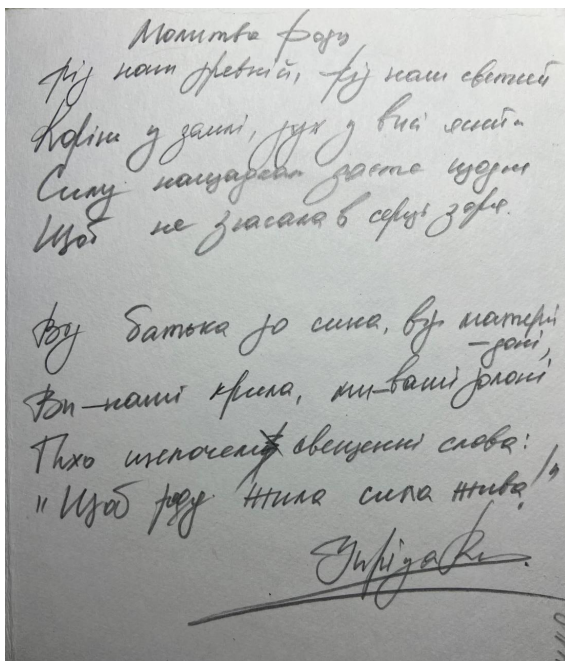 Молитва роду
Рід наш древній, рід наш світлий
Корінь у землі, дух у висі
Силу нащадкам щодня
Щоб не згасала в серці зоря.
Від батька до сина, від матері
– далі,
Ви – наші крила, ми – ваші долоні
Тихо шепочем священні слова:
"Щоб роду жила сила жива!"